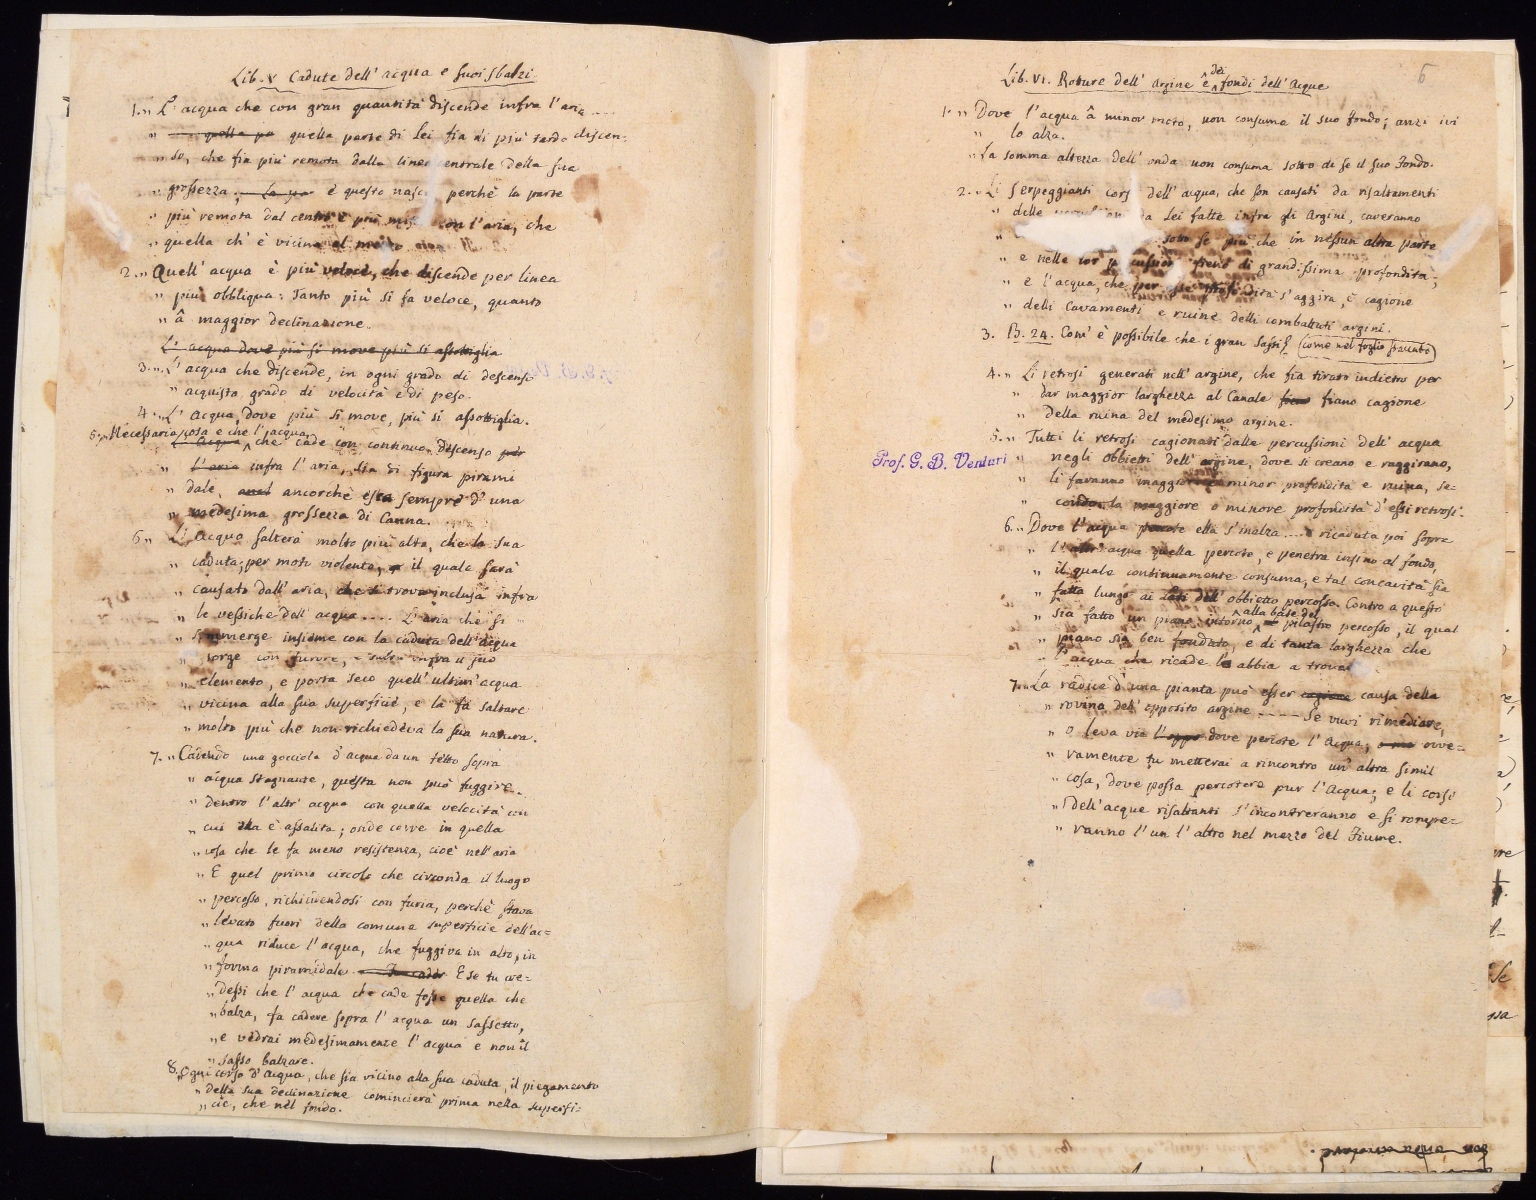 Lib. V Cadute dell' acqua e suoi sbalzi
1. „ L' acqua che con gran quantità discende infra l' aria ....
„ quella pa quella parte di lei fia di più tardo discen-
„ so, che fia più remota dalla linea centrale della sua
„ grossezza; La pa è questo nasce perchè la parte
„ più remota dal centro è più mista con l'aria, che
„ quella ch' è vicina al mezzo
2. „ Quell' acqua è più veloce, che discende per linea
„ più obbliqua: Tanto più si fa veloce, quanto
„ â maggior declinazione.
L' acqua dove più si move più si assottiglia
3. „ L' acqua che discende, in ogni grado di descenso
„ acquista grado di velocità e di peso.
4. „ L' Acqua, dove più si move, più si assottiglia.
5. „ Necessaria cosa è che l' acqua
L' Acqua che cade con continuo descenso per
„ L' aria infra l' aria, sia di figura pirami
„ dale, ancorchè esca sempre d' una
„ medesima grossezza di Canna.
6 „ L' Acqua salterà molto più alta, che la sua
„ caduta; per moti violento, il quale sarà
„ causato dall' aria, che si trova inclusa infra
„ le vessiche dell' acqua .... L' aria che si
„ summerge insieme con la caduta dell' acqua
„ sorge con furore, e salta infra il suo
„ elemento, e porta seco quell' ultim' acqua
„ vicina alla sua superficie, e la fà saltare
„ molto più che non richiedeva la sua natura.
7. „ Cadendo una gocciola d' acqua da un tetto sopra
„ acqua stagnante, questa non può fuggire
„ dentro l' altr' acqua con quella velocità con
„ cui ella è assalita; onde corre in quella
„ cosa che le fa meno resistenza, cioè nell' aria
„ E quel primo circolo che circonda il luogo
„ percosso, richiudendosi con furia, perchè stava
„ levato fuori della comune superficie dell' ac=
„ qua riduce l' acqua, che fuggiva in alto, in
„ forma piramidale E se tu cre=
„ dessi che l' acqua che cade fosse quella che
„ balza, fa cadere sopra l' acqua un sassetto,
„ e vedrai medesimamente l' acqua e non il
„ sasso balzare.
8. „ Ogni corso d' Acqua, che sia vicino alla sua caduta, il piegamento
„ della sua declinazione comincierà prima nella superfi=
„ cie, che nel fondo.
6
Lib. VI. Roture dell' Argine e dei fondi dell' Acque
1. „ Dove l' acqua â minor moto, non consuma il suo fondo; anzi ivi
„ lo alza.
„ La somma altezza dell' onda non consuma sotto di se il suo fondo.
2. „ Li serpeggianti corsi dell' acqua, che son causati da risaltamenti
„ delle da lei fatte infra gli Argini, caveranno
„ sotto se più che in nessun altra parte
„ e nelle lor percussioni fieno di grandissima profondità;
„ e l' acqua, che per profondità s' aggira, è cagione
„ delli Cavamenti e ruine delli combattuti argini.
3. B. 24. Com' è possibile che i gran Sassi (come nel foglio staccato)
4. „ Li retrosi generati nell' argine, che fia tirato indietro per
„ dar maggior larghezza al Canale fieno fiano cagione
„ della ruina del medesimo argine.
5. „ Tutti li retrosi cagionati dalle percussioni dell' acqua
Prof. G. B. Venturi
„ negli obbietti dell' argine, dove si creano e raggirano,
„ li faranno maggior e minor profondità e ruina, se=
„ condo la maggiore o minore profondità d' essi retrosi.
6. „ Dove l' acqua percote ella s' inalza .... e ricaduta poi sopra
„ l' altr' acqua quella percote, e penetra insino al fondo,
„ il quale continuamente consuma, e tal concavità sia
„ fatta lungo ai Lati dell' obbietto percosso Contro a questo
„ sia fatto un piano intorno alla base del pilastro percosso, il qual
„ piano sia ben fondato, e di tanta larghezza che
„ l' acqua che ricade l' abbia a trovar
7. „ La radice d' una pianta può esser cagione causa della
„ rovina dell' opposito argine .... Se vuoi rimediare,
„ o leva via l' oppo dove percote l' Acqua; ovve=
„ ramente tu metterai a rincontro un' altra simil
„ cosa, dove possa percotere pur l' Acqua; e li corsi
„ dell' acque risaltanti s' incontreranno e si rompe=
„ ranno l' un l' altro nel mezzo del Fiume.